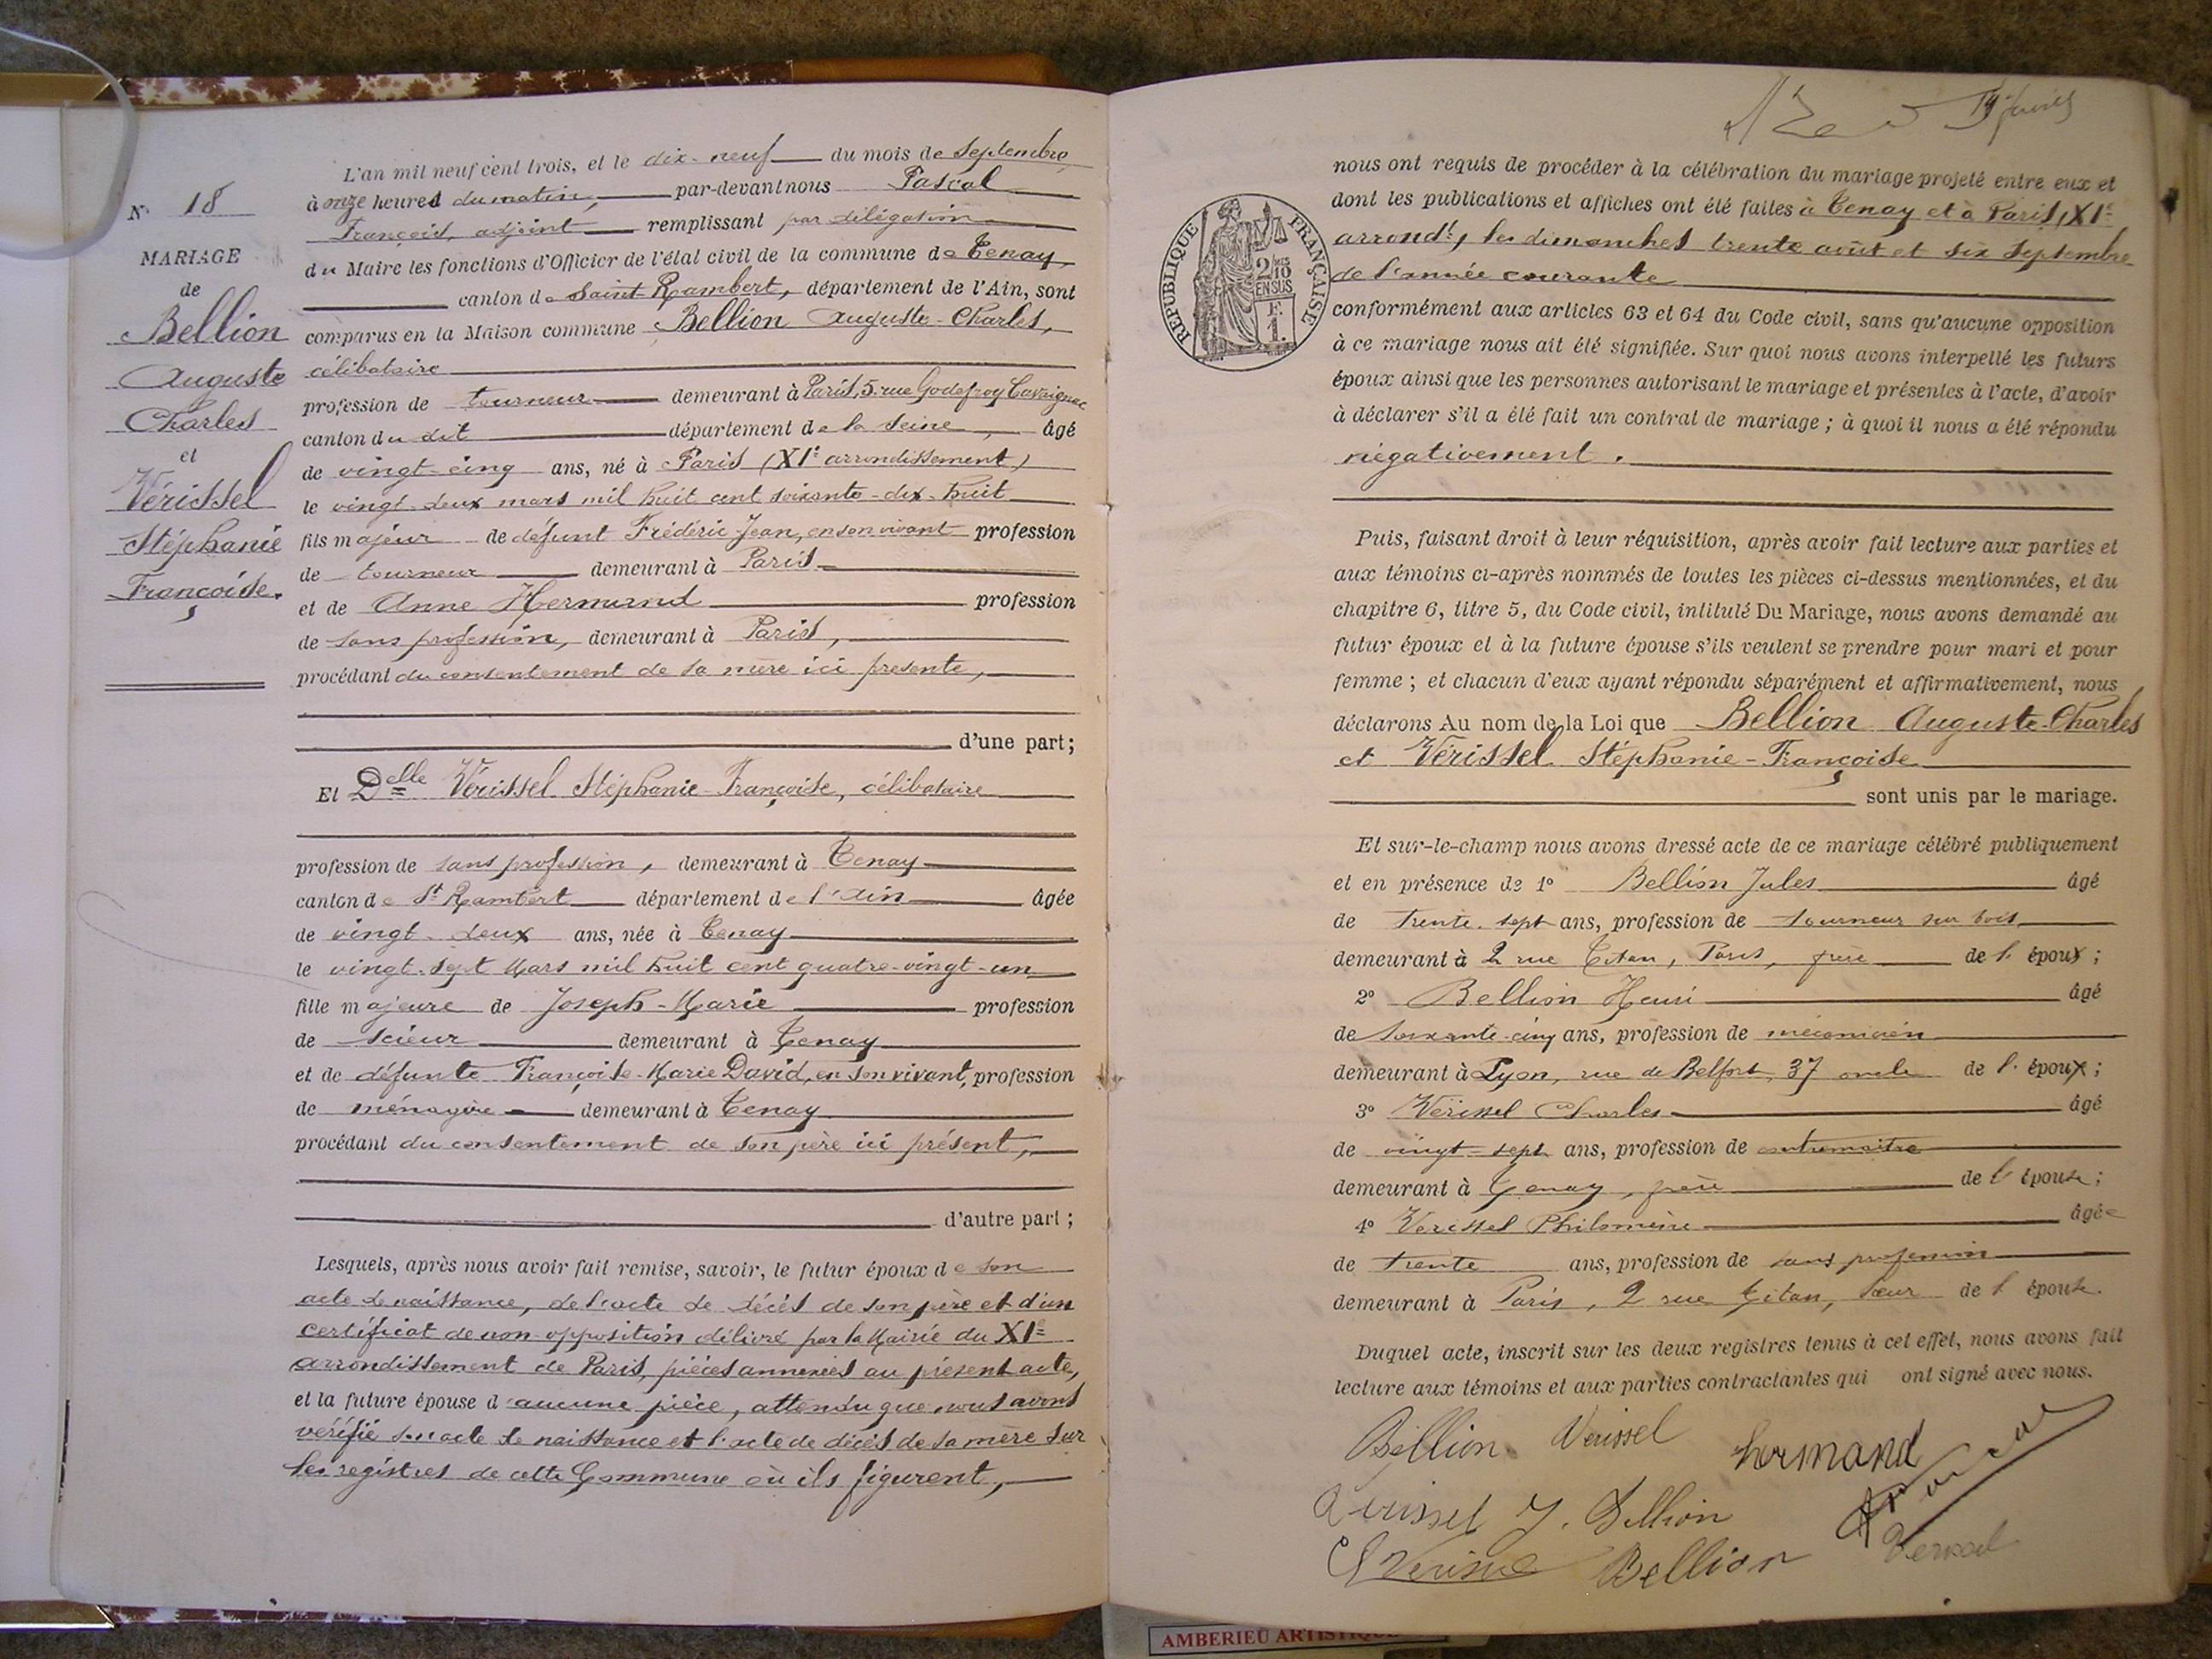 L'an mil neuf cent trois, et le dix-neuf du mois de Septembre
à onze heures du matin, par-devant nous Pascal
François, adjoint remplissant par délégation
du Maire les fonctions d'Officier de l'état civil de la commune de Tenay,
canton de Saint-Rambert, département de l'Ain, sont
comparus en la Maison commune Bellion Auguste-Charles,
célibataire
profession de tourneur demeurant à Paris, 5, rue Godefroy Cavaignac
canton du dit département de la Seine, âgé
de vingt-cinq ans, né à Paris (XIe arrondissement)
le vingt-deux mars mil huit cent soixante-dix-huit
fils majeur de défunt Frédéric Jean, en son vivant profession
de tourneur demeurant à Paris
et de Anne Hermand profession
de sans profession, demeurant à Paris,
procédant du consentement de sa mère ici présente,
d'une part;
Et Delle Vérissel Stéphanie-Françoise, célibataire
profession de sans profession, demeurant à Tenay
canton de St Rambert département de l'Ain âgée
de vingt-deux ans, née à Tenay
le vingt-sept Mars mil huit cent quatre-vingt-un
fille majeure de Joseph-Marie profession
de scieur demeurant à Tenay
et de défunte Françoise-Marie David, en son vivant, profession
de ménagère demeurant à Tenay
procédant du consentement de son père ici présent,
d'autre part;
Lesquels, après nous avoir fait remise, savoir, le futur époux de son
acte de naissance, de l'acte de décès de son père et d'un
certificat de non-opposition délivré par la Mairie du XIe
arrondissement de Paris, pièces annexées au présent acte,
et la future épouse d'aucune pièce, attendu que nous avons
vérifié son acte de naissance et l'acte de décès de sa mère sur
les registres de cette Commune où ils figurent,
No 18
MARIAGE
de
Bellion
Auguste
Charles
et
Vérissel
Stéphanie
Françoise.
nous ont requis de procéder à la célébration du mariage projeté entre eux et
dont les publications et affiches ont été faites à Tenay et à Paris (XIe
arrondt), les dimanches trente août et six Septembre
de l'année courante
conformément aux articles 63 et 64 du Code civil, sans qu'aucune opposition
à ce mariage nous ait été signifiée. Sur quoi nous avons interpellé les futurs
époux ainsi que les personnes autorisant le mariage et présentes à l'acte, d'avoir
à déclarer s'il a été fait un contrat de mariage; à quoi il nous a été répondu
négativement.
RÉPUBLIQUE FRANÇAISE
2/10
EN SUS
F.
1.
Puis, faisant droit à leur réquisition, après avoir fait lecture aux parties et
aux témoins ci-après nommés de toutes les pièces ci-dessus mentionnées, et du
chapitre 6, titre 5, du Code civil, intitulé Du Mariage, nous avons demandé au
futur époux et à la future épouse s'ils veulent se prendre pour mari et pour
femme; et chacun d'eux ayant répondu séparément et affirmativement, nous
déclarons Au nom de la Loi que Bellion Auguste-Charles
et Vérissel Stéphanie-Françoise
sont unis par le mariage.
Et sur-le-champ nous avons dressé acte de ce mariage célébré publiquement
et en présence de 1o Bellion Jules âgé
de trente-sept ans, profession de tourneur sur bois
demeurant à 2 rue Titon, Paris, frère de l'époux;
2o Bellion Henri âgé
de soixante-cinq ans, profession de mécanicien
demeurant à Lyon, rue de Belfort, 37 oncle de l'époux;
3o Vérissel Charles âgé
de vingt-sept ans, profession de contremaitre
demeurant à Tenay, frère de l'épouse;
4o Verissel Philomène âgée
de trente ans, profession de sans profession
demeurant à Paris, 2 rue Titon, sœur de l'épouse.
Duquel acte, inscrit sur les deux registres tenus à cet effet, nous avons fait
lecture aux témoins et aux parties contractantes qui ont signé avec nous.
Bellion Verissel hermand
Verissel J. Bellion
Bellion
AMBERIEU